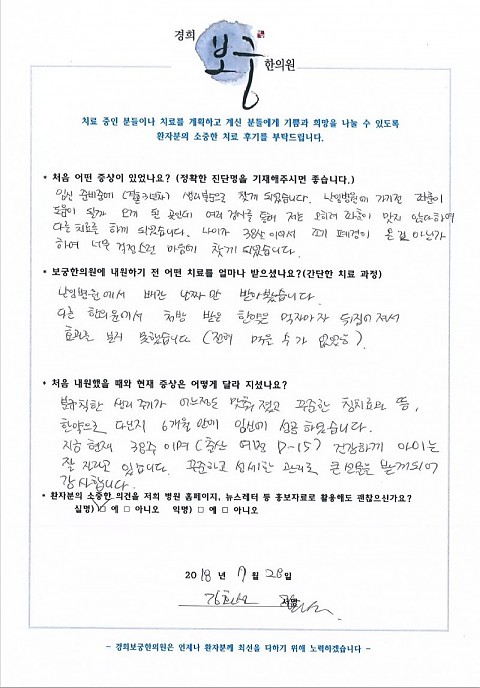 경희 보궁 한의원
치료 중인 분들이나 치료를 계획하고 계신 분들에게 기쁨과 희망을 나눌 수 있도록
환자분의 소중한 치료 후기를 부탁드립니다.
* 처음 어떤 증상이 있었나요? (정확한 진단명을 기재해주시면 좋습니다.)
임신 준비중에 (결혼3년차) 생리불순으로 찾게 되었습니다. 난임병원에 가기전 좌훈이
도움이 될까 오게 된 곳인데 여러 검사를 통해 저는 오히려 좌훈이 맞지 않다하여
다른 치료를 하게 되었습니다. 나이가 38살 이여서 조기 폐경이 온건 아닌가
하여 너무 걱정스런 마음에 찾게 되었습니다.
* 보궁한의원에 내원하기 전 어떤 치료를 얼마나 받으셨나요?(간단한 치료 과정)
난임병원에서 배란 날짜만 받아봤습니다.
다른 한의원에서 처방 받은 한약은 먹자마자 뒤집어져서
효과를 보지 못했습니다 (전혀 먹을 수가 없었음).
* 처음 내원했을 때와 현재 증상은 어떻게 달라 지셨나요?
불규칙한 생리 주기가 어느정도 맞춰졌고 꾸준한 침치료와 뜸,
한약으로 다닌지 6개월만에 임신에 성공 하였습니다.
지금 현재 38주 이며 (출산 예정 D-15) 건강하게 아이는
잘 자라고 있습니다. 꾸준하고 섬세한 관리로 큰 선물을 받게되어
감사합니다.
* 환자분의 소중한 의견을 저희 병원 홈페이지, 뉴스레터 등 홍보자료로 활용해도 괜찮으신가요?
실명) □ 예 □ 아니오 익명) □ 예 □ 아니오
2018 년 7 월 28 일
서명
- 경희보궁한의원은 언제나 환자분께 최선을 다하기 위해 노력하겠습니다 -